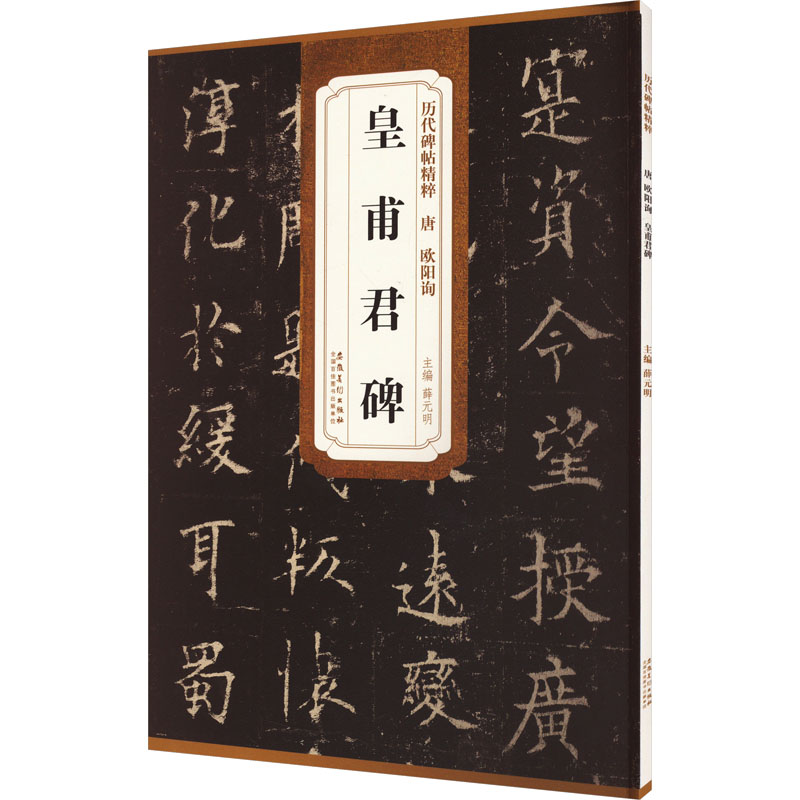 历代碑帖精粹 唐 欧阳询
皇甫君碑
主编 薛元明
安徽美术出版社
全国百佳图书出版单位
寔資令望授廣
遠變
是代叛懐
淳化於緩耳蜀
历代碑帖精粹 唐 欧阳询 皇甫君碑 主编 薛元明
安徽美术出版社